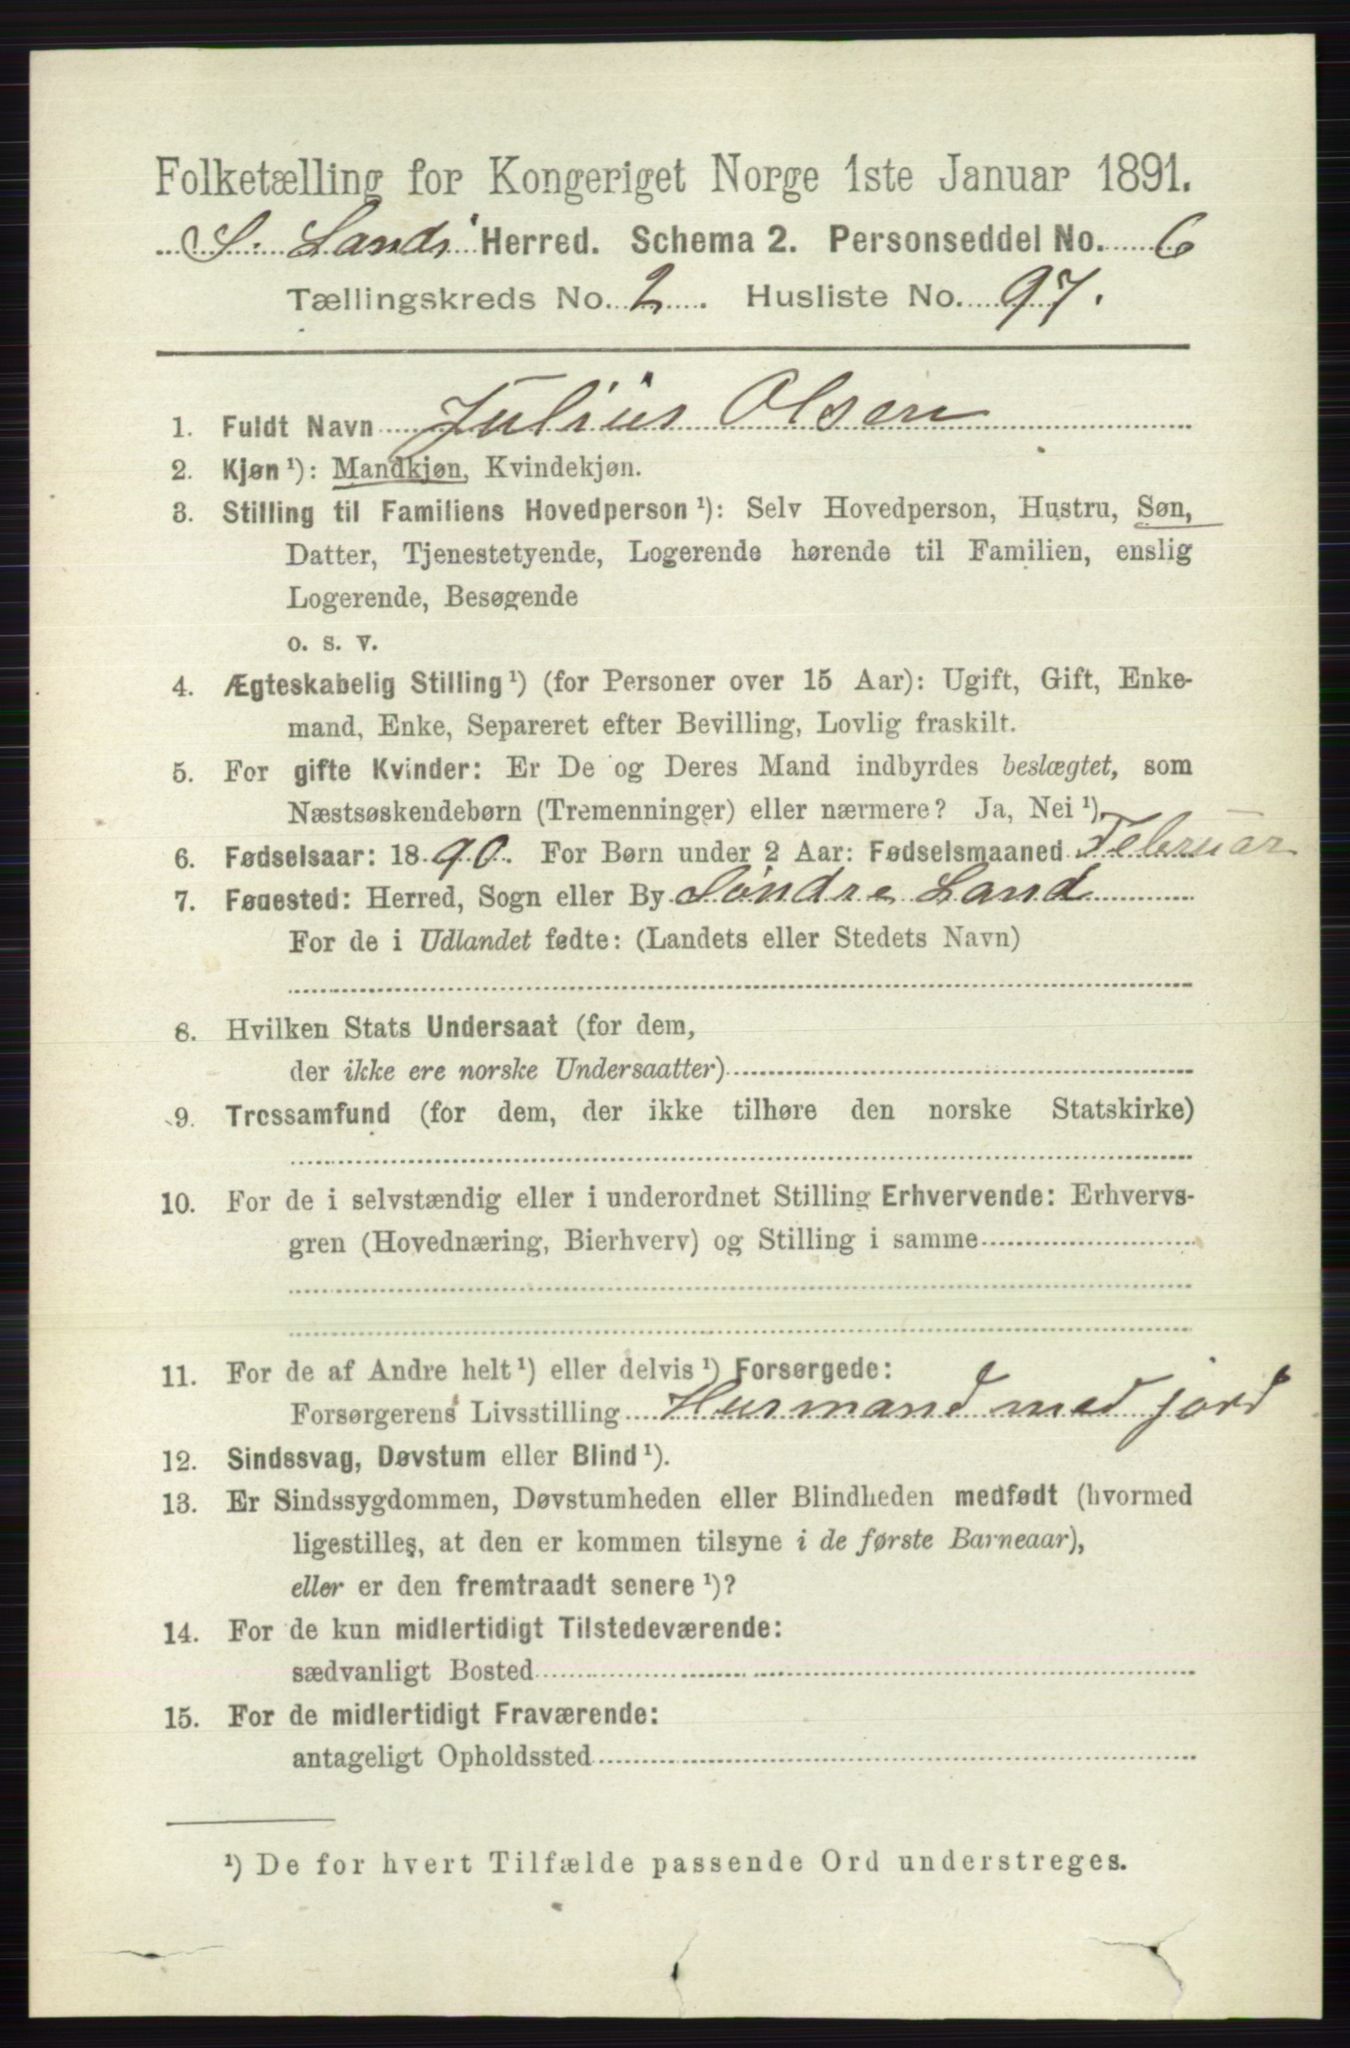 Folketælling for Kongeriget Norge 1ste Januar 1891.
S. Lands Herred. Schema 2. Personseddel No. 6
Tællingskreds No. 2. Husliste No. 97.
1. Fuldt Navn Julius Olsen
2. Kjøn ¹): Mandkjøn, Kvindekjøn.
3. Stilling til Familiens Hovedperson ¹): Selv Hovedperson, Hustru, Søn,
Datter, Tjenestetyende, Logerende hørende til Familien, enslig
Logerende, Besøgende
o. s. v.
4. Ægteskabelig Stilling ¹) (for Personer over 15 Aar): Ugift, Gift, Enke-
mand, Enke, Separeret efter Bevilling, Lovlig fraskilt.
5. For gifte Kvinder: Er De og Deres Mand indbyrdes beslægtet, som
Næstsøskendebørn (Tremenninger) eller nærmere? Ja, Nei ¹).
6. Fødselsaar: 1890. For Børn under 2 Aar: Fødselsmaaned Februar
7. Fødested: Herred, Sogn eller By Søndre Land
For de i Udlandet fødte: (Landets eller Stedets Navn)
8. Hvilken Stats Undersaat (for dem,
der ikke ere norske Undersaatter)
9. Trossamfund (for dem, der ikke tilhøre den norske Statskirke)
10. For de i selvstændig eller i underordnet Stilling Erhvervende: Erhvervs-
gren (Hovednæring, Bierhverv) og Stilling i samme
11. For de af Andre helt ¹) eller delvis ¹) Forsørgede:
Forsørgerens Livsstilling Husmand med jord
12. Sindssvag, Døvstum eller Blind ¹).
13. Er Sindssygdommen, Døvstumheden eller Blindheden medfødt (hvormed
ligestilles, at den er kommen tilsyne i de første Barneaar),
eller er den fremtraadt senere ¹)?
14. For de kun midlertidigt Tilstedeværende:
sædvanligt Bosted
15. For de midlertidigt Fraværende:
antageligt Opholdssted
¹) De for hvert Tilfælde passende Ord understreges.